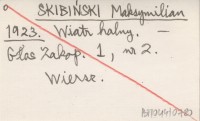 SKIBIŃSKI Maksymilian
1923. Wiatr halny. —
Głos Zakop. 1, nr 2.
Wiersz.